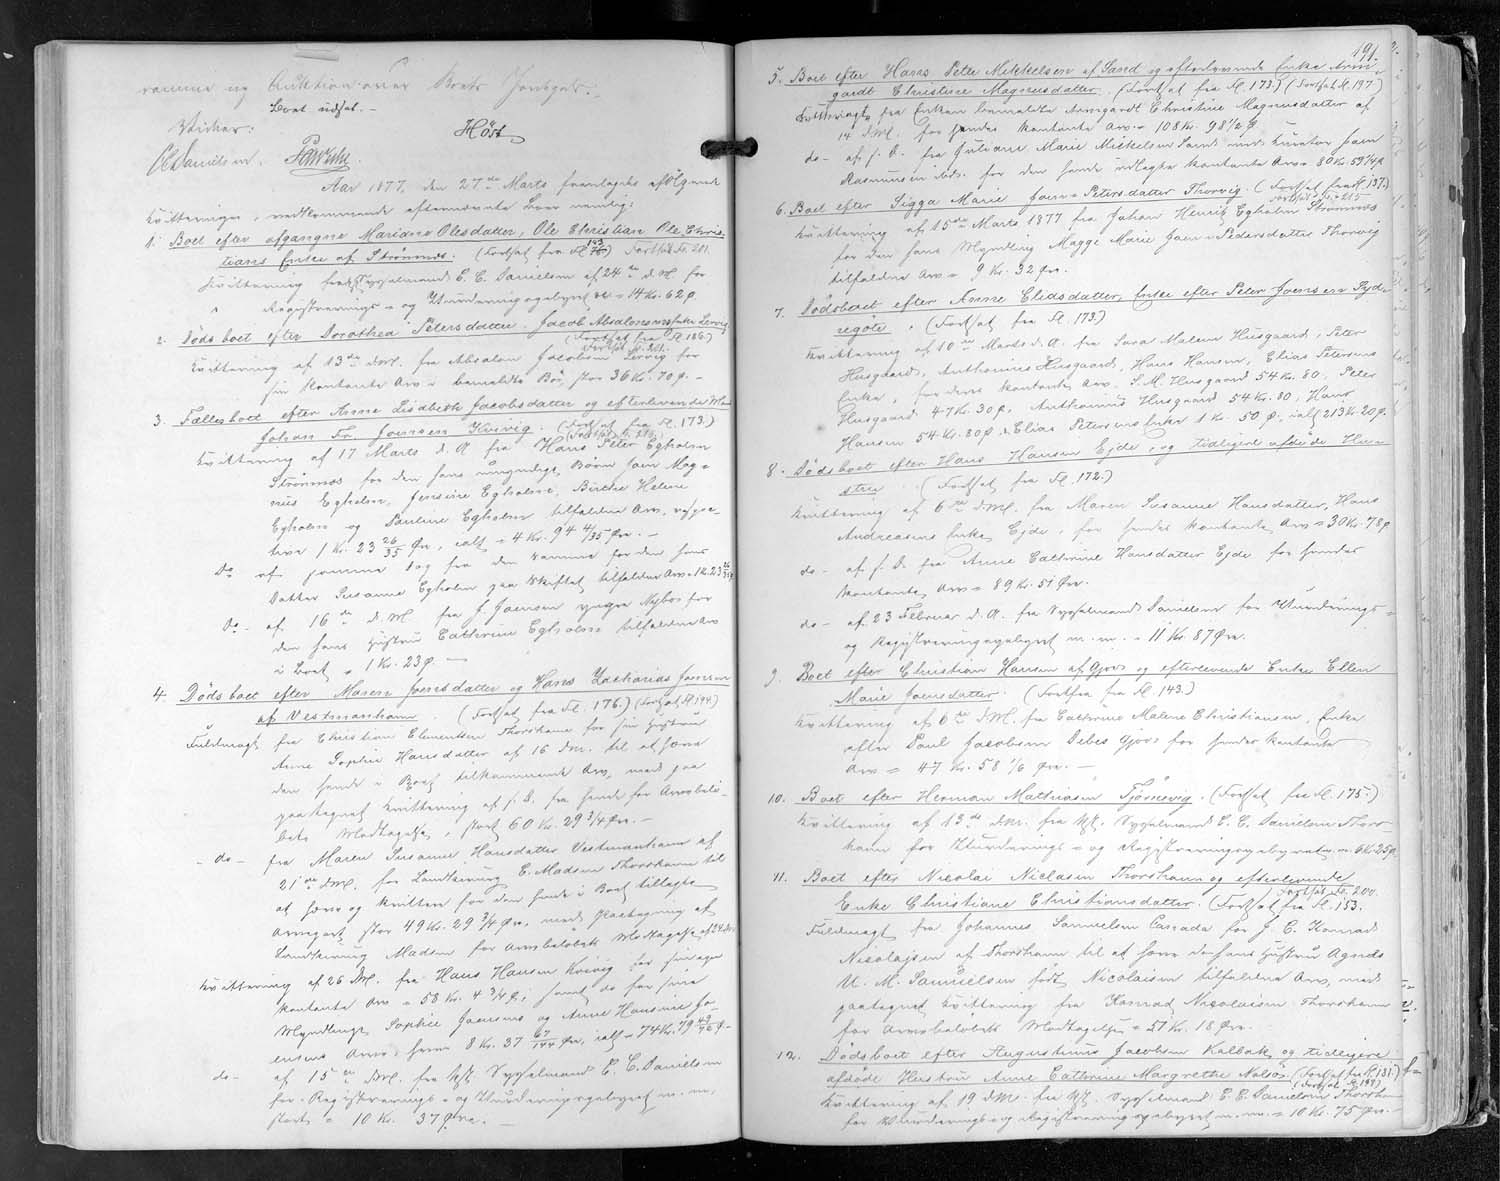 ramme og Auktion over Boets Jordgods.
Boet udsat. -
Høst
Vidner:
Aar 1877, den 27de Marts fremlagdes følgende
Kvitteringer, vedkommende efternævnte Boer nemlig:
1. Boet efter afgangne Mariane Olesdatter, Ole Christian Ole Chris-
tians Enke af Strømnæs. (Fortsat fra Fl. 143) Fortsat Fl. 201.
Kvittering fra Sysselmand E. C. Danielsen af 24de d.M. for
Registrerings- og Vurderingsgebyret = 14 Kr. 62 Ø.
2. Dødsboet efter Dorothea Petersdatter, Jacob Absalonsens Enke Lervig
(Fortsat fra Fl. 186.)
Fortsat Fl. 201.
Kvittering af 13de d.M. fra Absalon Jacobsen Lervig for
sin kontante Arv i bemeldte Bo, stor 36 Kr. 70 Ø. -
3. Fællesboet efter Anne Lisbeth Jacobsdatter og efterlevende Mand
Johan Fr. Joensen Kvivig. (Fortsat fra Fl. 173.)
Kvittering af 17 Marts d. A. fra Hans Peter Egholm
Strømnæs for den hans umyndige Børn Joen Mag-
nus Egholm, Jensine Egholm, Birthe Helene
Egholm og Pauline Egholm tilfaldne Arv, respec-
tive 1 Kr. 23 26/35 Øre, ialt = 4 Kr. 94 4/35 Øre. -
Do af samme Dag fra den samme for den hans
Datter Susanne Egholm paa Skiftet tilfaldne Arv = 1 Kr. 23 26/35 Ø.
Do - af 16de d.M. fra J. Joensen yngre Nybo for
den hans Hustru Cathrine Egholm tilfaldne Arv
i Boet = 1 Kr. 23 Ø. -
4. Dødsboet efter Maren Joensdatter og Hans Zacharias Joensen
af Vestmanhavn. (Fortsat fra Fl. 176.) (Fortsat Fl. 194.)
Fuldmagt fra Christian Clementsen Thorshavn for sin Hustru
Anne Sophie Hansdatter af 16 d.M. til at hæve
den hende i Boet tilkommende Arv, med paa-
paategnet Kvittering af s. D. fra hende for Arvebelø-
bets Modtagelse, stort 60 Kr. 29 3/4 Øre. -
- do - fra Maren Susanne Hansdatter Vestmanhavn af
21de d.M. for Landkirurg E. Madsen Thorshavn til
at hæve og kvittere for den hende i Boet tillagte
Arvepart, stor 49 Kr. 29 3/4 Øre, med Paategning af
Landkirurg Madsen for Arvebeløbets Modtagelse af 24 d.M.
Kvittering af 26 d.M. fra Hans Hansen Kvivig for sin egen
kontante Arv = 58 Kr. 4 3/4 Ø; samt do for sine
Myndlinge Sophie Joensens og Anne Hansine Jo-
ensens Arv, hver 8 Kr. 37 67/144 Øre, ialt = 74 Kr. 79 Ø -
do - af 15de d.M. fra Kst. Sysselmand E. C. Danielsen
for Registrerings- og Vurderingsgebyret m. m.,
stort = 10 Kr. 37 Øre. -
191.
5. Boet efter Hans Peter Mikkelsen af Sand og efterlevende Enke Arm-
gardt Christine Magnusdatter. (Fortsat fra Fl. 173.) (Fortsat Fl. 197)
Kvittering fra Enken bemeldte Armgardt Christine Magnusdatter af
14 d.M. for hendes kontante Arv = 108 Kr. 98 1/2 Ø.
do - af s. D. fra Juliane Marie Mikkelsen Sand med Kurator Joen
Rasmussen ibd. for den hende udlagte kontante Arv = 80 Kr. 59 1/4 Ø.
6. Boet efter Sigga Marie Joen-Petersdatter Thorvig. (Fortsat fra Fl. 137.)
Fortsat Fl. 215
Kvittering af 15de Marts 1877 fra Johan Henrik Egholm Strømnæs
for den hans Myndling Magge Marie Joen-Pedersdatter Thorvig
tilfaldne Arv = 9 Kr. 32 Øre.
7. Dødsboet efter Anne Eliasdatter, Enke efter Peter Joensen Syd-
regøte. (Fortsat fra Fl. 173.)
Kvittering af 10de Marts d. A. fra Sara Malene Husgaard, Peter
Husgaard, Anthonius Husgaard, Hans Hansen, Elias Petersens
Enke, for deres kontante Arv, S. M. Husgaard 54 Kr. 80, Peter
Husgaard 47 Kr. 30 Ø, Anthonius Husgaard 54 Kr. 80, Hans
Hansen 54 Kr. 80 Ø & Elias Petersens Enke 1 Kr. 50 Ø, ialt 213 Kr. 20 Ø.
8. Dødsboet efter Hans Hansen Ejde, og tidligere afdøde Hu-
stru. (Fortsat fra Fl. 172.)
Kvittering af 6te d.M. fra Maren Susanne Hansdatter, Hans
Andreasens Enke Ejde, for hendes kontante Arv = 30 Kr. 78 Ø
do - af s. D. fra Anne Cathrine Hansdatter Ejde for hendes
kontante Arv = 89 Kr. 51 Øre.
do - af 23 Februar d. A. fra Sysselmand Danielsen for Vurderings-
og Registreringsgebyret m. m. = 11 Kr. 87 Øre.
9. Boet efter Christian Hansen af Gjov og efterlevende Enke Ellen
Marie Joensdatter. (Fortsat fra Fl. 143.)
Kvittering af 6te d.M. fra Cathrine Malene Christiansen, Enke
efter Paul Jacobsen Debes Gjov for hendes kontante
Arv = 47 Kr. 58 1/6 Øre. -
10. Boet efter Herman Mathiasen Tjørnevig. (Fortsat fra Fl. 175.)
Kvittering af 13de d.M. fra Kst. Sysselmand E. C. Danielsen Thors-
havn for Vurderings- og Registreringsgebyret = 6 Kr. 25 Ø.
11. Boet efter Nicolai Niclasen Thorshavn og efterlevende
Enke Christiane Christiansdatter. (Fortsat fra Fl. 153.
Fortsat Fl. 200.
Fuldmagt fra Johannes Samuelsen Canada for J. C. Konrad
Nicolajsen af Thorshavn til at hæve den hans Hustru Agnes
U. M. Samuelsen født Nicolaisen tilfaldne Arv, med
paategnet Kvittering fra Konrad Nicolaisen Thorshavn
for Arvebeløbets Modtagelse = 57 Kr. 18 Øre.
12. Dødsboet efter Augustinus Jacobsen Kalbak og tidligere
afdøde Hustru Anne Cathrine Margrethe Nolsø. (Fortsat fra Fl. 131.)
(Fortsat Fl. 199)
Kvittering af 19 d.M. fra Kst. Sysselmand E. C. Danielsen Thorshavn
for Vurderings- og Registreringsgebyret m. m. = 10 Kr. 75 Øre. -